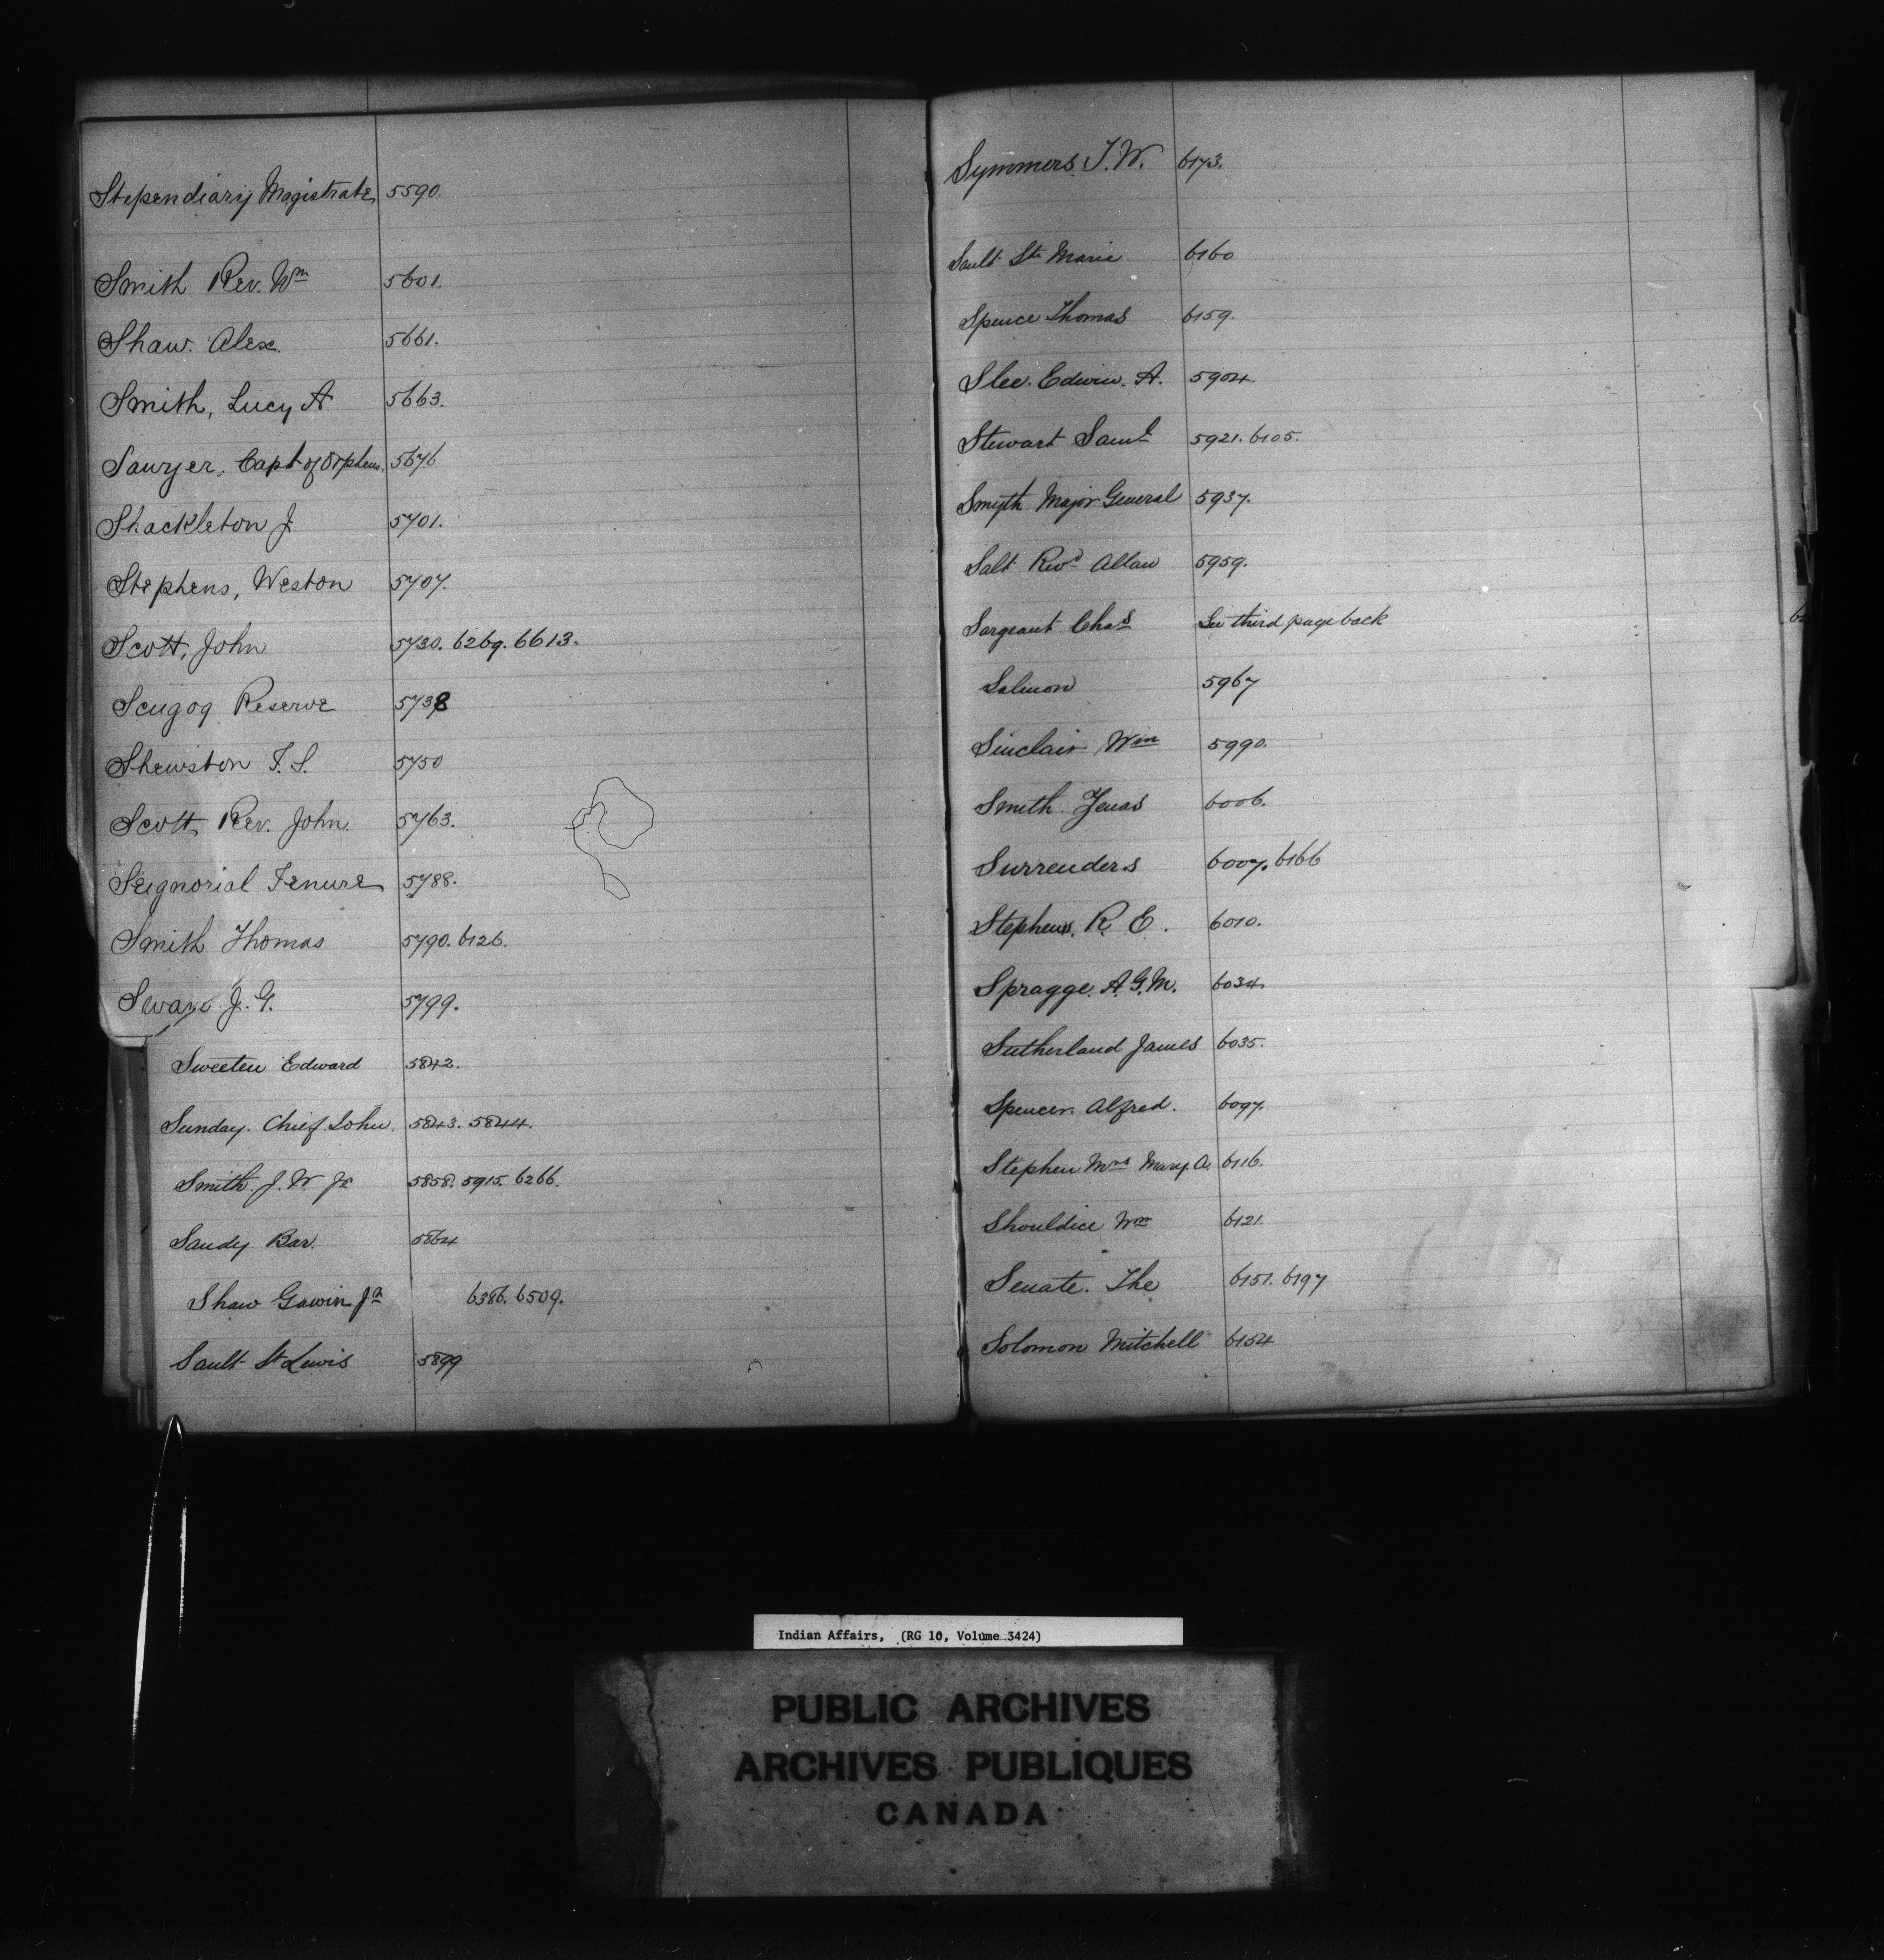 Stependiary Magistrate 5590.
Smith Rev. Wm 5601.
Shaw. Alex. 5661.
Smith, Lucy A 5663.
Sawyer, Capt of Orpheus. 5676
Shackleton J. 5701.
Stephens, Weston 5707.
Scott, John 5730. 6269. 6613.
Scugog Reserve 5738
Shewston T. S. 5750
Scott, Rev. John. 5763.
Seignorial Tenure 5788.
Smith Thomas 5790. 6126.
Swan J. G. 5799.
Sweeten Edward 5842.
Sunday. Chief John. 5843. 5844.
Smith. J. W. Jr 5858. 5915. 6266.
Sandy Bar. 5864
Shaw Gawin Jr 6386. 6509.
Sault St Lewis 5899
Symmers T. W. 6173.
Sault Ste Marie 6160
Spence Thomas 6159.
Slee. Edwin. A. 5904.
Stewart Saml 5921. 6105.
Smyth Major General 5937.
Salt Revd Allan 5959.
Sargeant Chas See third page back
Salmon 5967
Sinclair Wm 5990.
Smith. Zenas 6006.
Surrenders 6007. 6166
Stephens, R. E. 6010.
Spragge. A. G. M. 6034
Sutherland James 6035.
Spencer. Alfred. 6097.
Stephen Mrs Mary A. 6116.
Shouldice Wm 6121.
Senate. The 6151. 6197
Solomon Mitchell 6154
Indian Affairs, (RG 10, Volume 3424)
PUBLIC ARCHIVES
ARCHIVES PUBLIQUES
CANADA